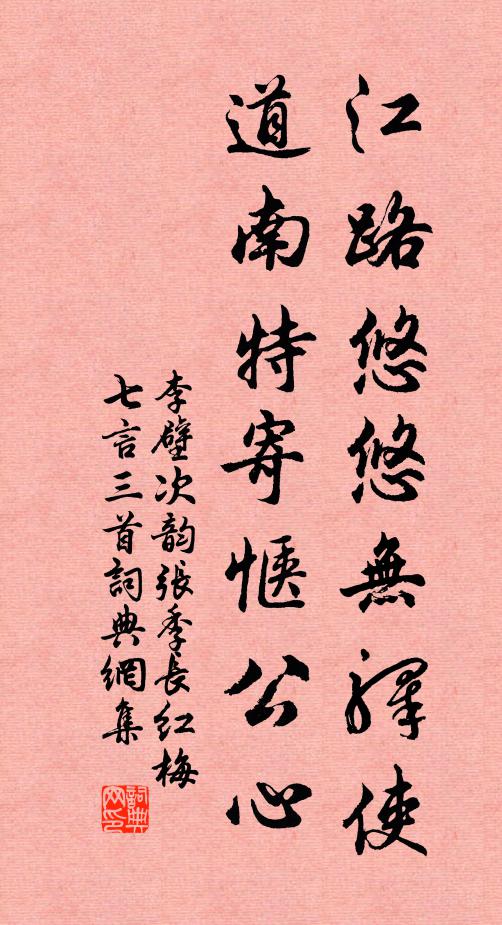 江路悠悠無驛使
道南特寄愜公心
李壁次韵張季長紅梅
七言三首詞典網集
詞典
网印